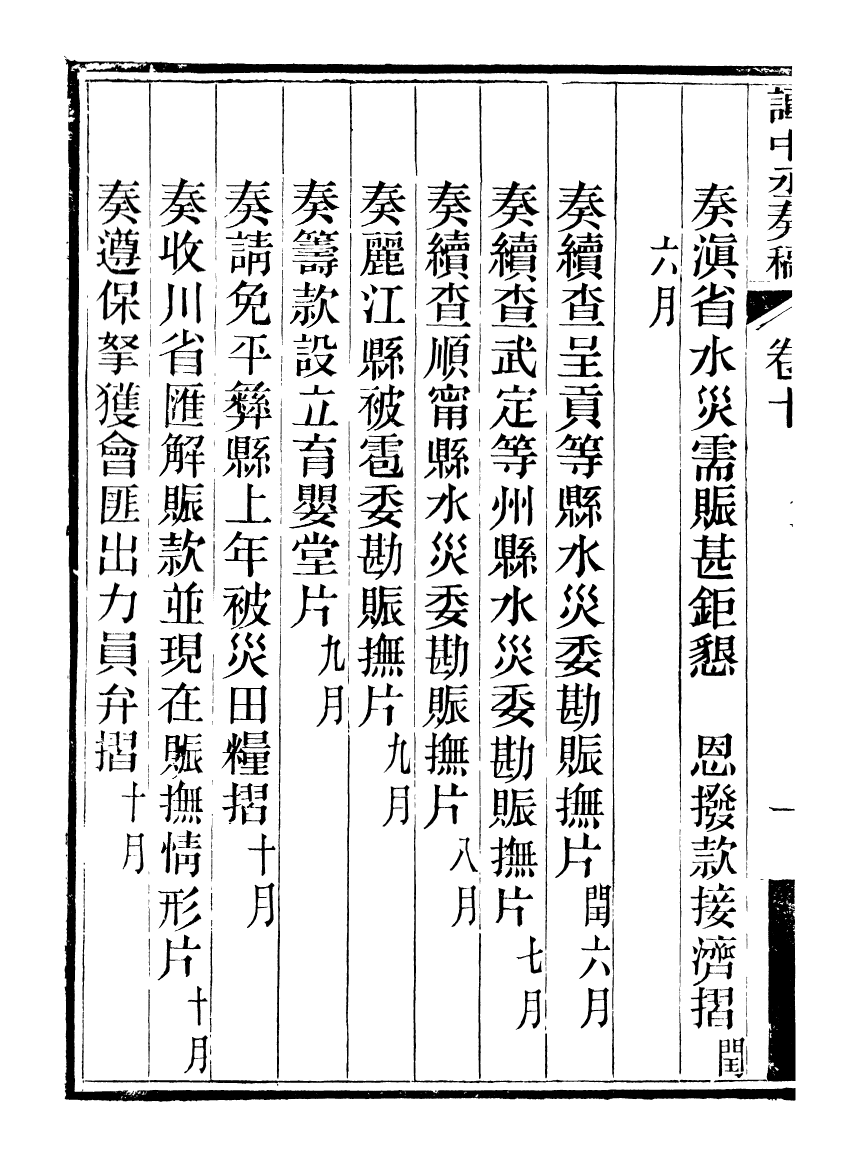 譚中丞奏稿 卷十 一
奏滇省水災需賑甚鉅懇 恩撥款接濟摺閏
六月
奏續查呈貢等縣水災委勘賑撫片閏六月
奏續查武定等州縣水災委勘賑撫片七月
奏續查順甯縣水災委勘賑撫片八月
奏麗江縣被雹委勘賑撫片九月
奏籌款設立育嬰堂片九月
奏請免平彝縣上年被災田糧摺十月
奏收川省匯解賑款並現在賑撫情形片十月
奏遵保拏獲會匪出力員弁摺十月